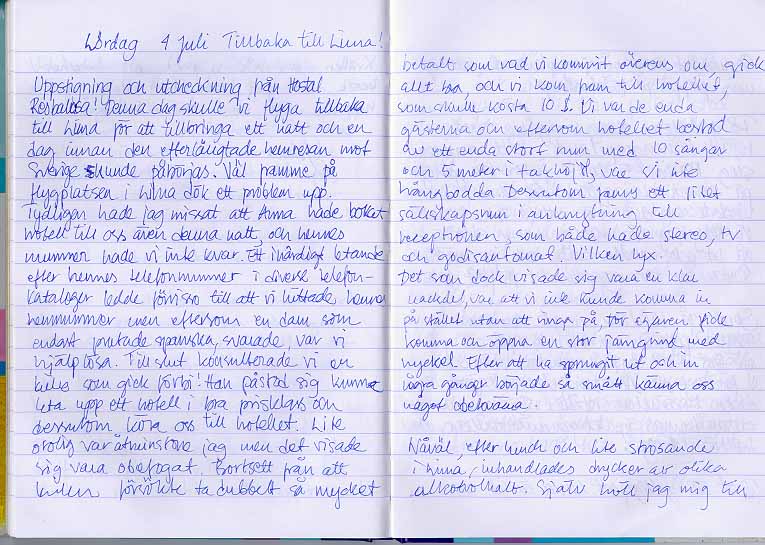 Lördag 4 juli Tillbaka till Lima!
Uppstigning och utcheckning från Hostal
Resbalosa! Denna dag skulle vi flyga tillbaka
till Lima för att tillbringa ett natt och en
dag innan den efterlängtade hemresan mot
Sverige skunde påbörjas. Väl framme på
flygplatsen i Lima dök ett problem upp.
Tydligen hade jag missat att Anna hade bokat
hotell till oss även denna natt, och hennes
nummer hade vi inte kvar. Ett ihärdigt letande
efter hennes telefonnummer i diverse telefon-
kataloger ledde förvisso till att vi hittade hennes
hemnummer men eftersom en dam som
endast pratade spanska, svarade, var vi
hjälplösa. Till slut konsulterade vi en
kille som gick förbi! Han påstod sig kunna
leta upp ett hotell i bra prisklass och
dessutom köra oss till hotellet. Lite
orolig var åtminstone jag men det visade
sig vara obefogat. Bortsett från att
killen försökte ta dubbelt så mycket
betalt som vad vi kommit överens om, gick
allt bra, och vi kom fram till hotellet,
som skulle kosta 10 $. Vi var de enda
gästerna och eftersom hotellet bestod
av ett enda stort rum med 10 sängar
och 5 meter i takhöjd, var vi lite
hångbodda. Dessutom fanns ett litet
sällskapsrum i anknytning till
receptionen, som både hade stereo, tv
och godisautomat. Vilken lyx.
Det som dock visade sig vara en klar
nackdel, var att vi inte kunde komma in
på stället utan att ringa på, för ägaren fick
komma och öppna en stor järngrind med
nyckel. Efter att ha sprungit ut och in
några gånger började så smått känna oss
något obekväma.
Nåväl, efter lunch och lite strosande
i Lima, inhandlades drycker av olika
alkoholhalt. Själv höll jag mig till